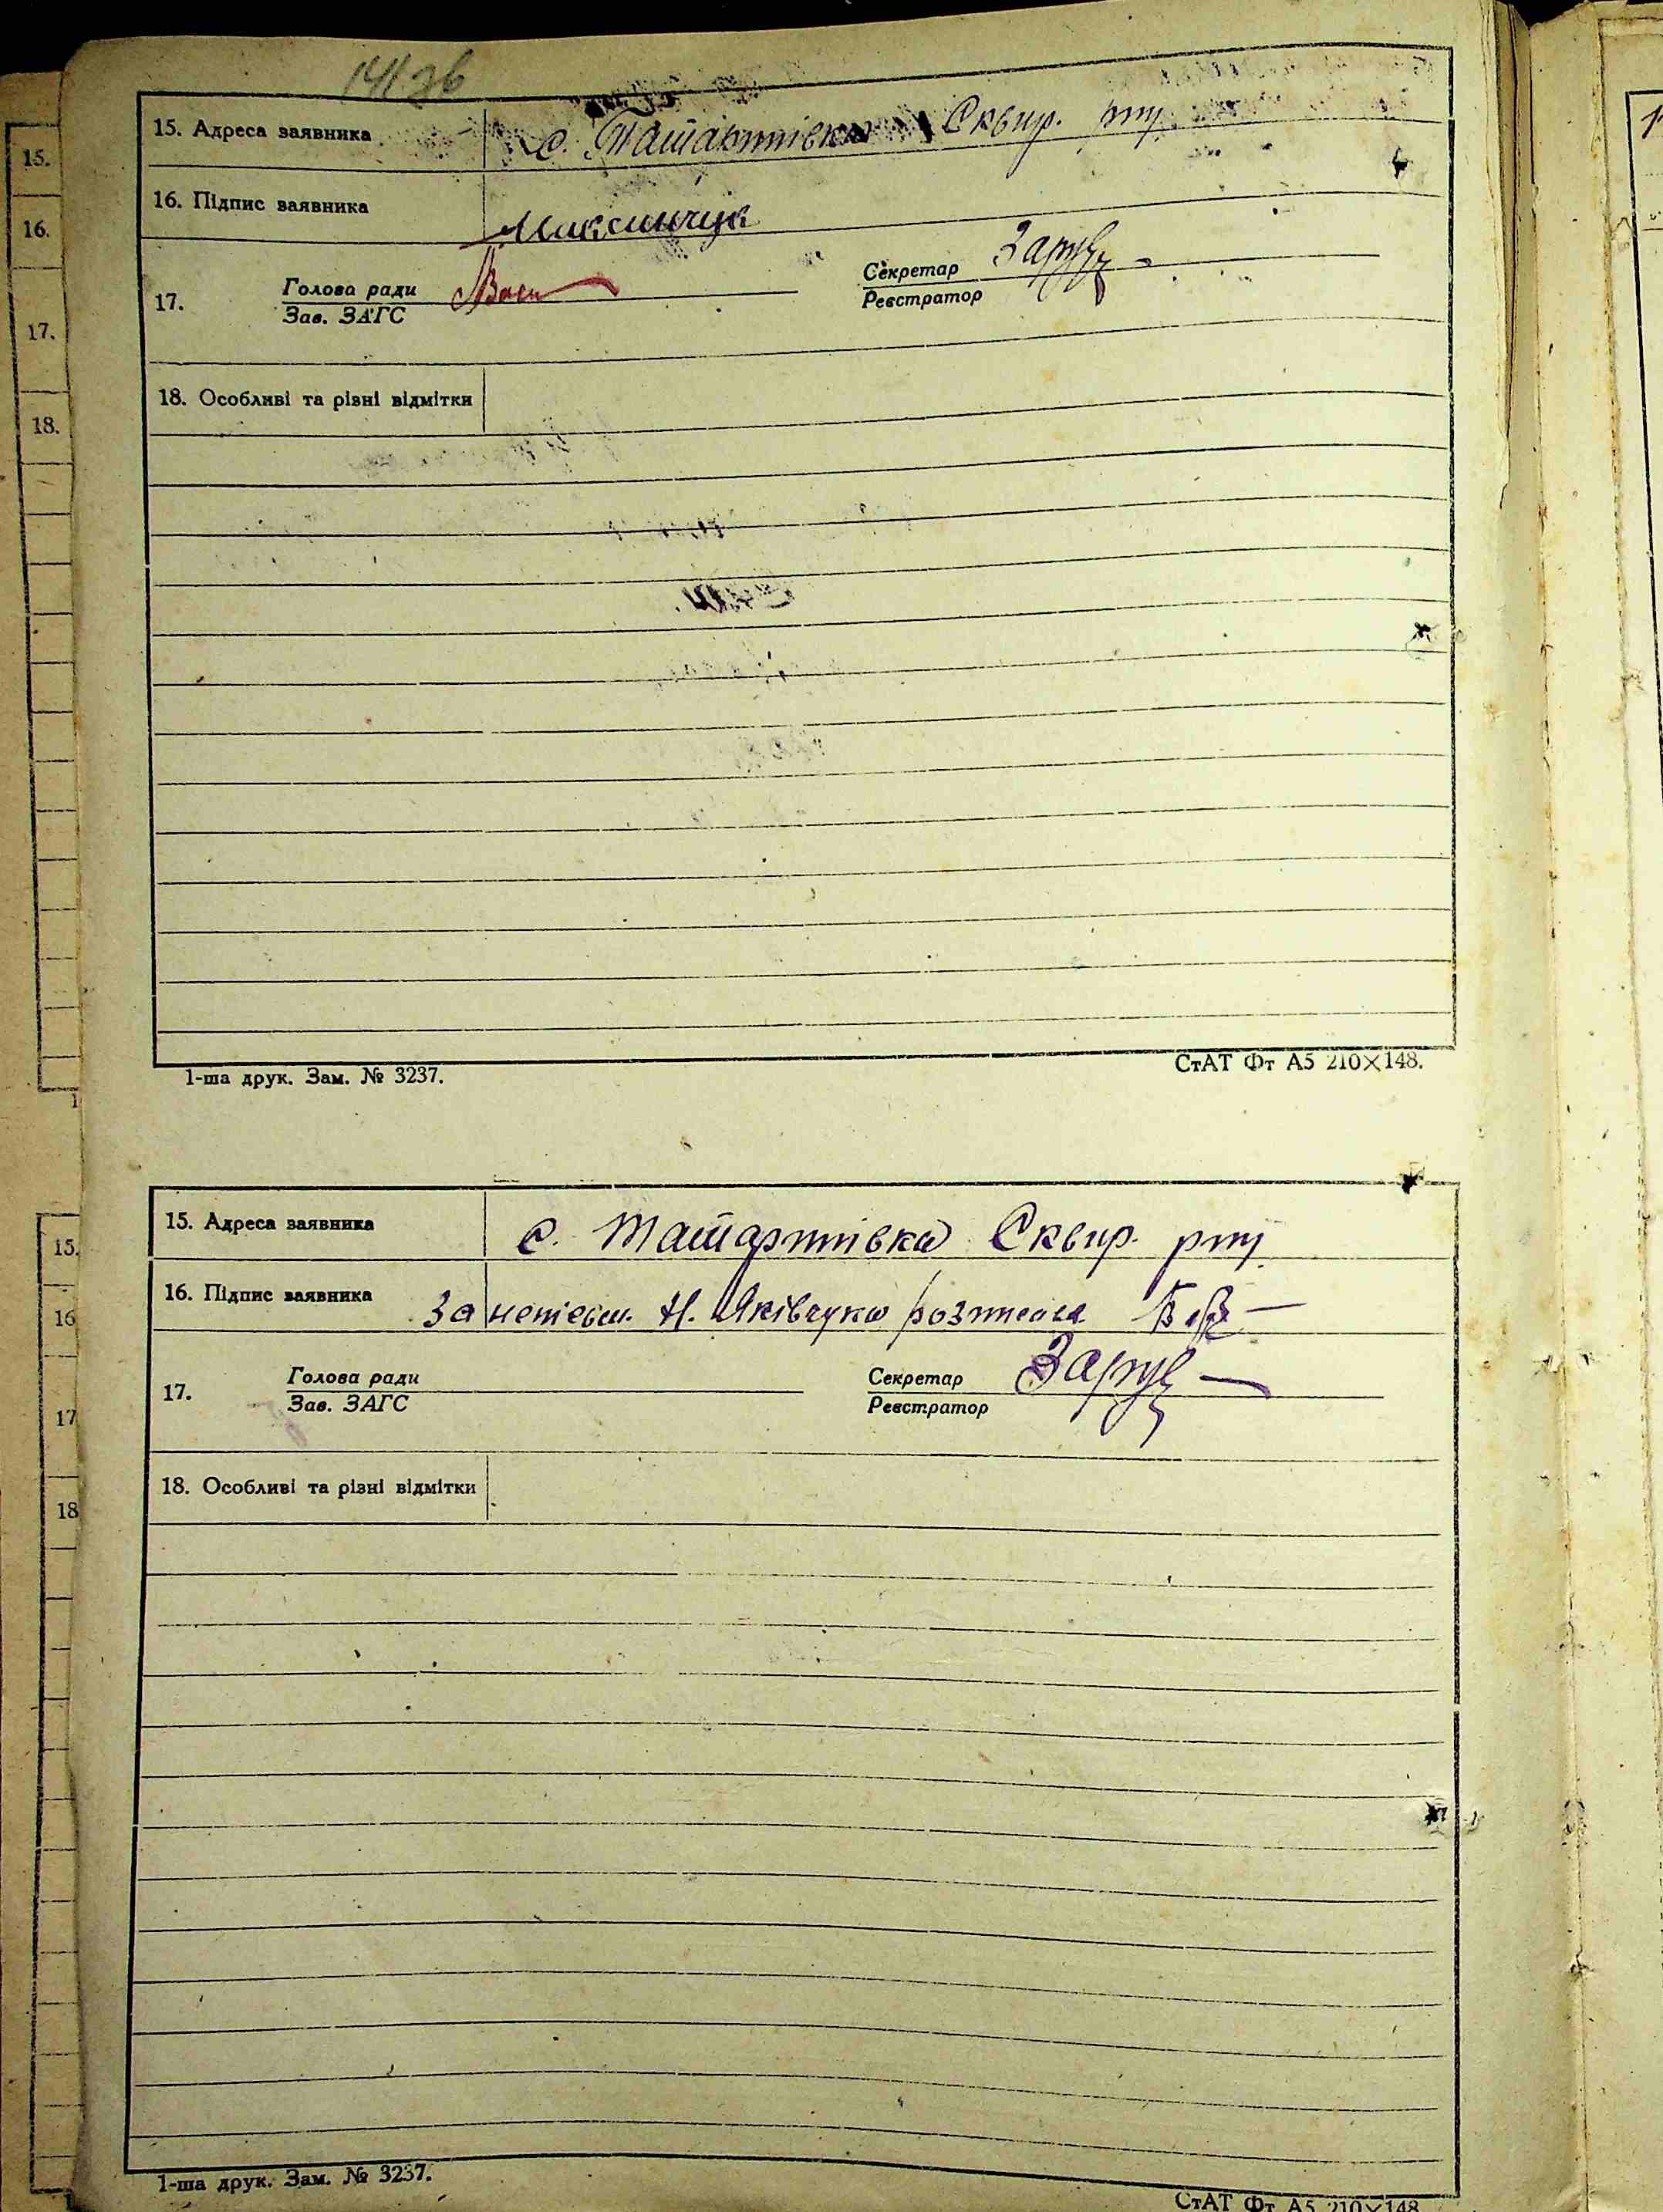 141 зв
15. Адреса заявника с. Татарптівка Сквир. рту
16. Підпис заявника Максимчук
17. Голова ради Секретар Заруб
Зав. ЗАГС Реєстратор
18. Особливі та різні відмітки
1-ша друк. Зам. № 3237. СтАТ Фт А5 210×148.
15. Адреса заявника с. Татарптівка Сквир. рту
16. Підпис заявника За неписьм. Н. Яківчука розписався
17. Голова ради Секретар Заруб
Зав. ЗАГС Реєстратор
18. Особливі та різні відмітки
1-ша друк. Зам. № 3237.
СтАТ Фт А5 210×148
15.
16.
17.
18.
15.
16
17
18